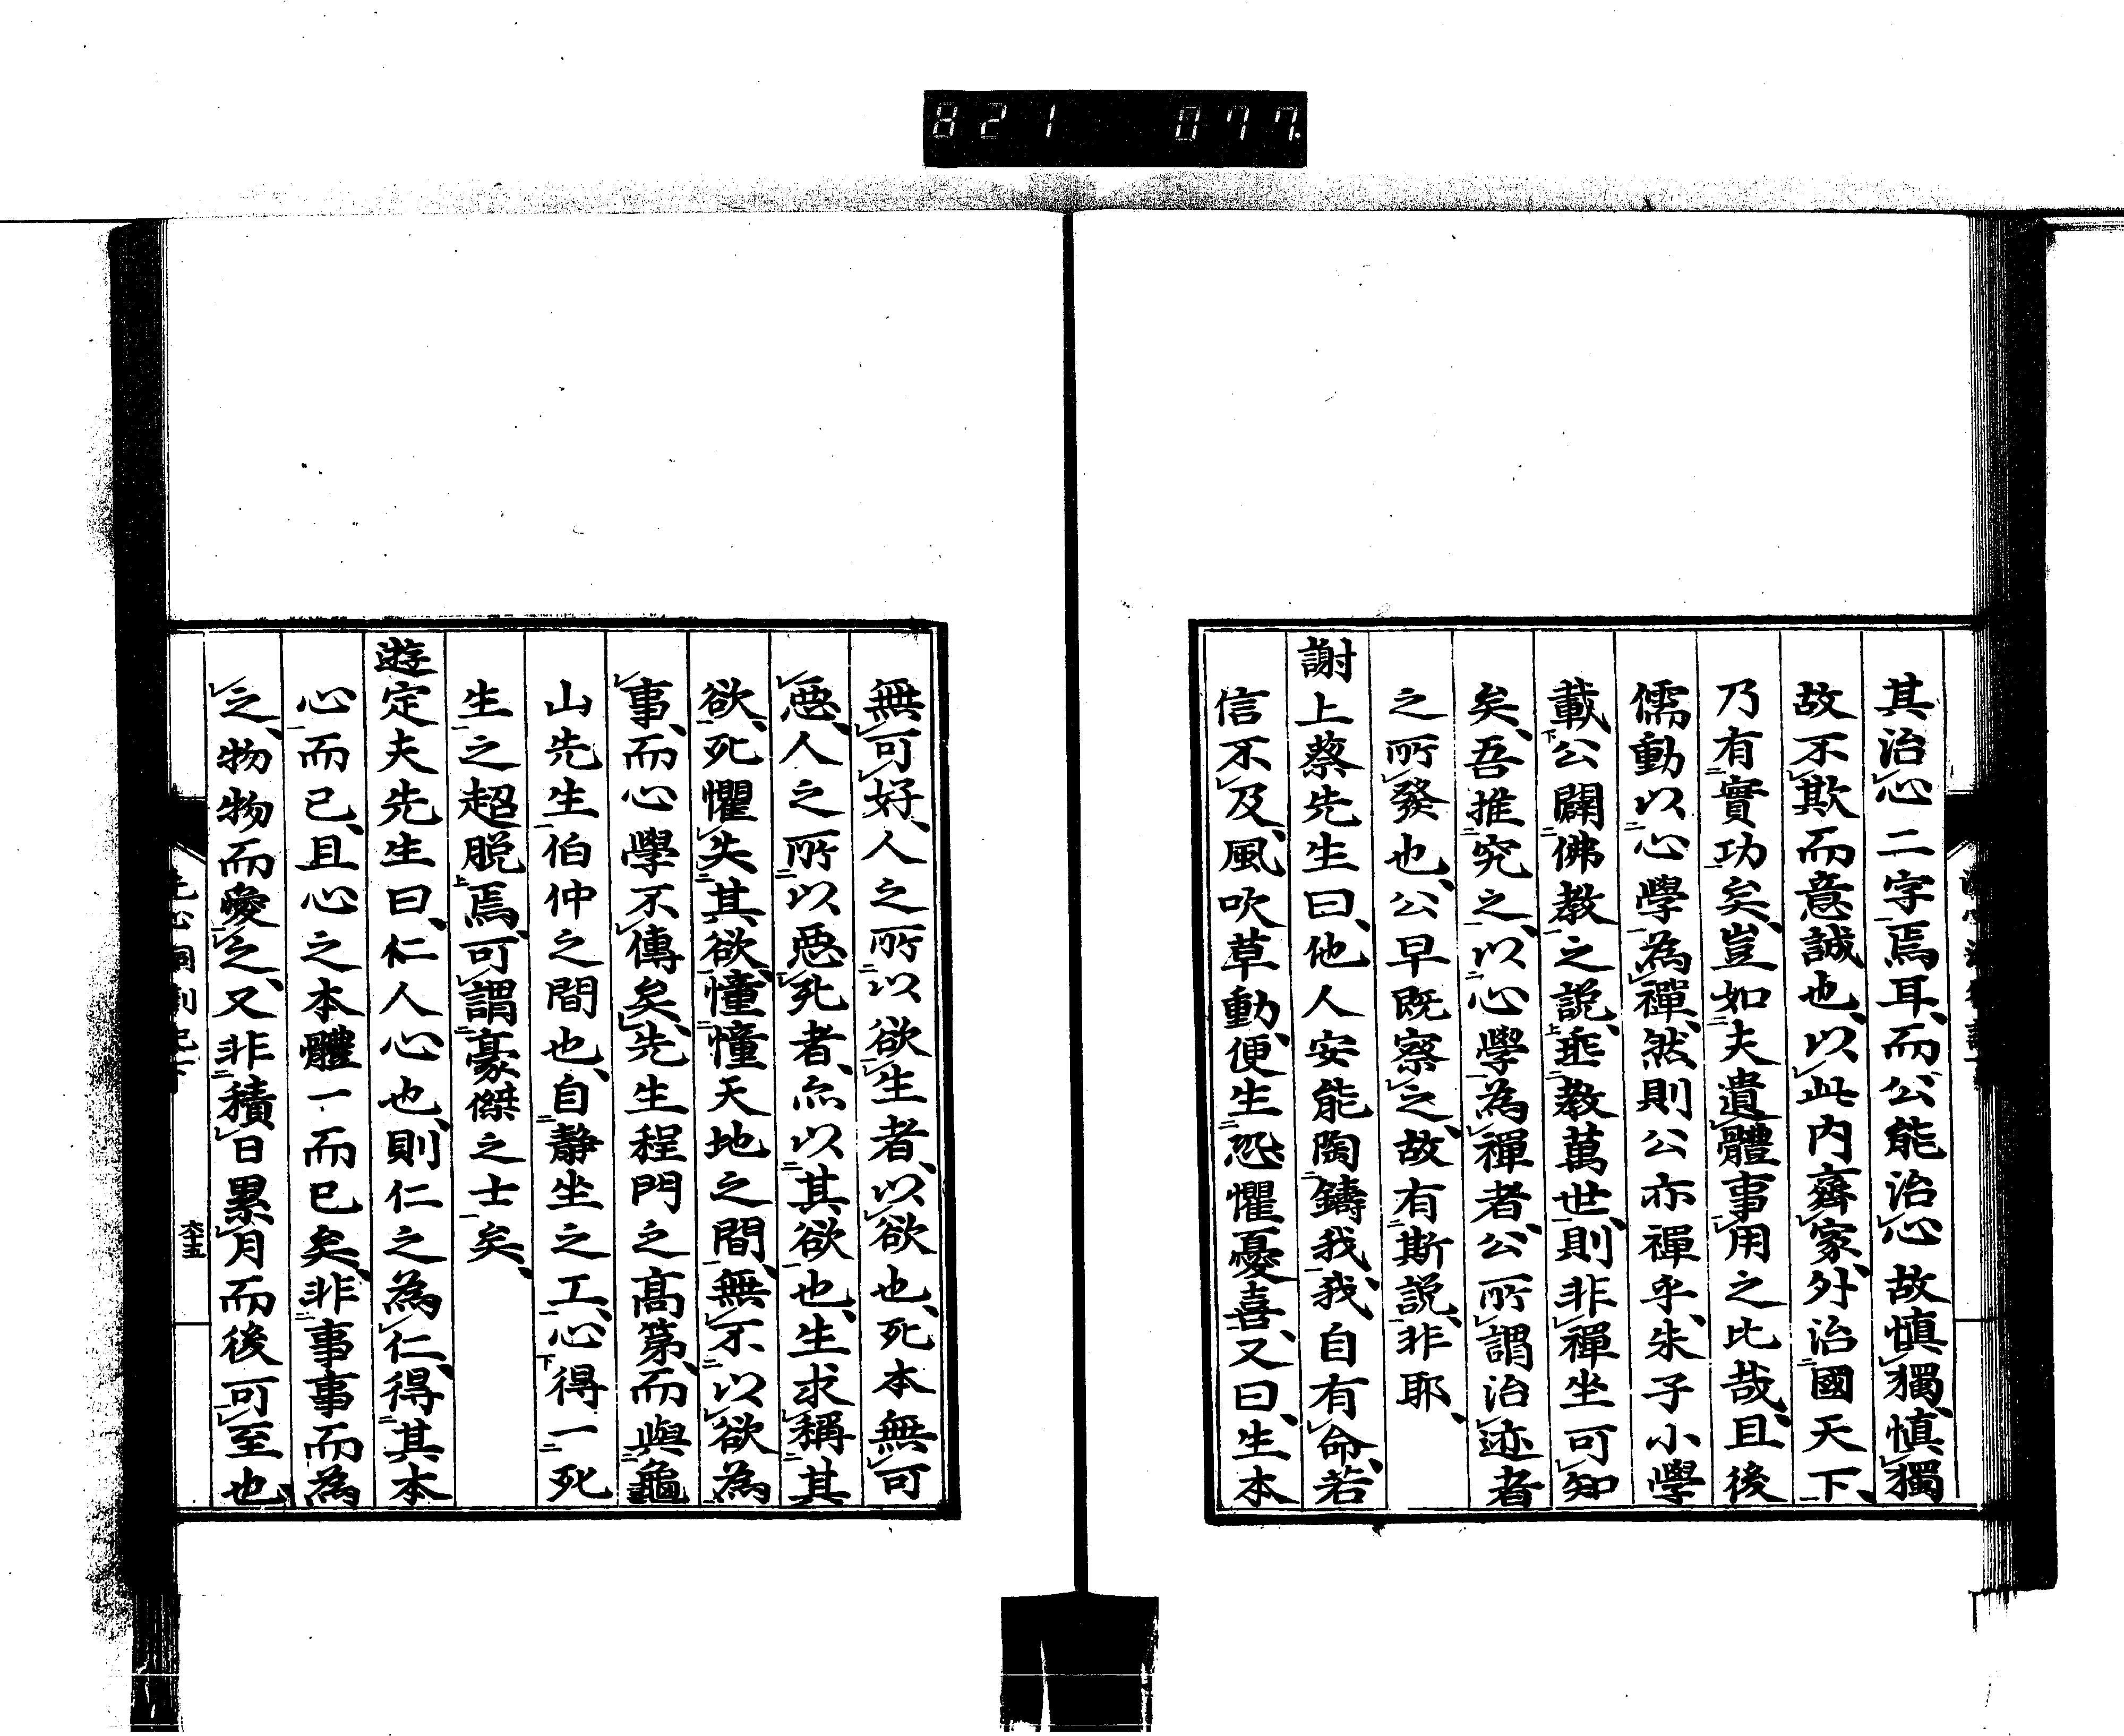 821 077
其治心二字焉耳、而公能治心故愼獨、愼獨
故不欺而意誠也、以此内齊家、外治國天下、
乃有實功矣、豈如夫遺體事用之比哉、且後
儒動以心學為禪、然則公亦禪乎、朱子小學
載公闢佛教之説、垂教萬世、則非禪坐可知
矣、吾推究之、以心學為禪者、公所謂治迹者
之所發也、公早既察之、故有斯説、非耶、
謝上蔡先生曰、他人安能陶鑄我、我自有命、若
信不及、風吹草動、便生恐懼憂喜、又曰、生本
無可好、人之所以欲生者、以欲也、死本無可
惡、人之所以惡死者、亦以其欲也、生求稱其
欲、死懼失其欲、憧憧天地之間、無不以欲為
事、而心學不傳矣、先生程門之高第、而與龜
山先生伯仲之間也、自靜坐之工、心得一死
生之超脱焉、可謂豪傑之士矣、
遊定夫先生曰、仁人心也、則仁之為仁、得其本
心而已、且心之本體一而已矣、非事事而為
之、物物而愛之、又非積日累月而後可至也、
六十五